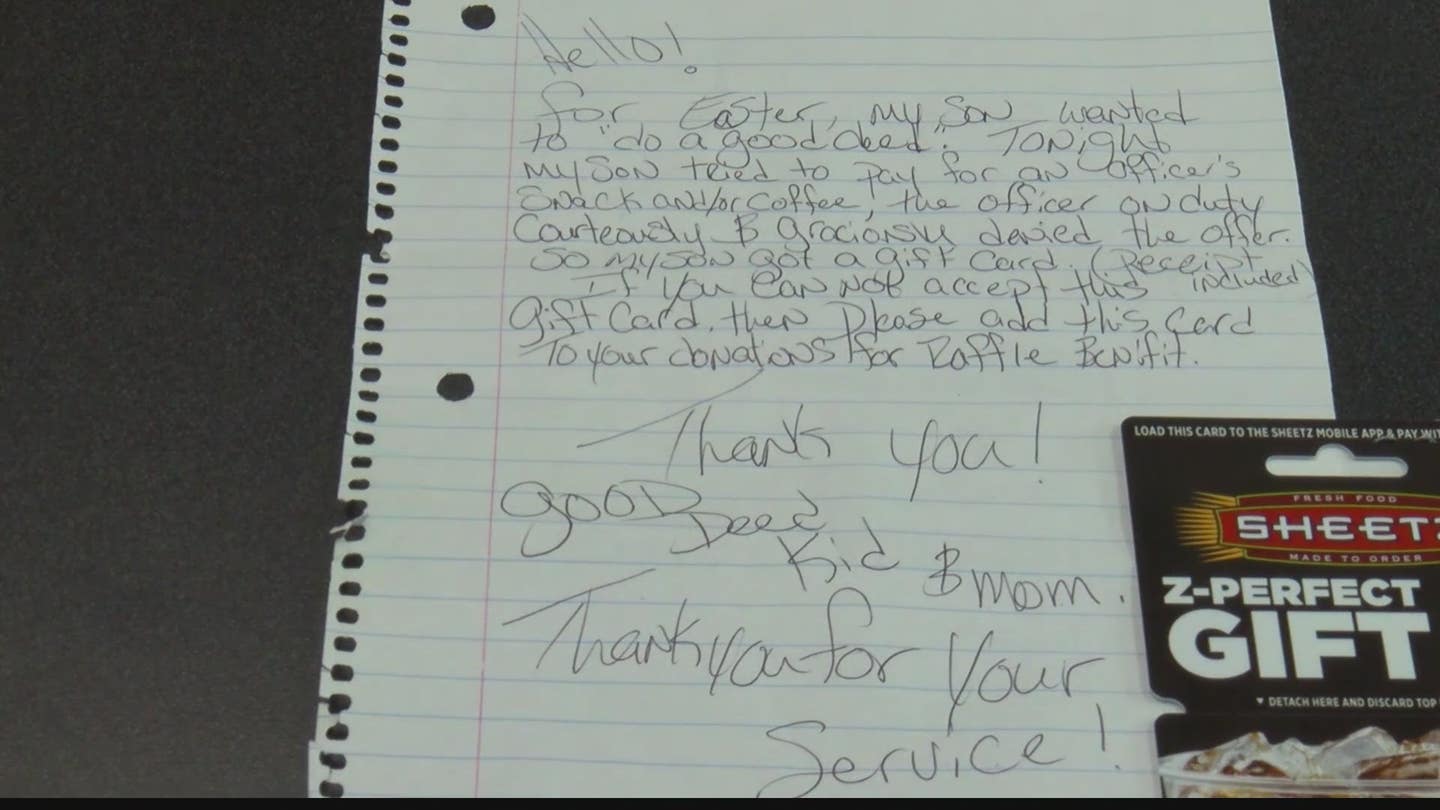 Hello!
for Easter, my son wanted
to "do a good deed". Tonight
my son tried to pay for an officer's
snack and/or coffee, the officer on duty
Courteously & graciously denied the offer.
So my son got a gift card. (Receipt
included)
If you can not accept this
gift card, then please add this card
to your donations for Raffle Benifit.
Thank you!
Good Deed
Kid & Mom.
Thank you for your
Service!
LOAD THIS CARD TO THE SHEETZ MOBILE APP & PAY WIT
FRESH FOOD
SHEETZ
MADE TO ORDER
Z-PERFECT
GIFT
▼ DETACH HERE AND DISCARD TOP